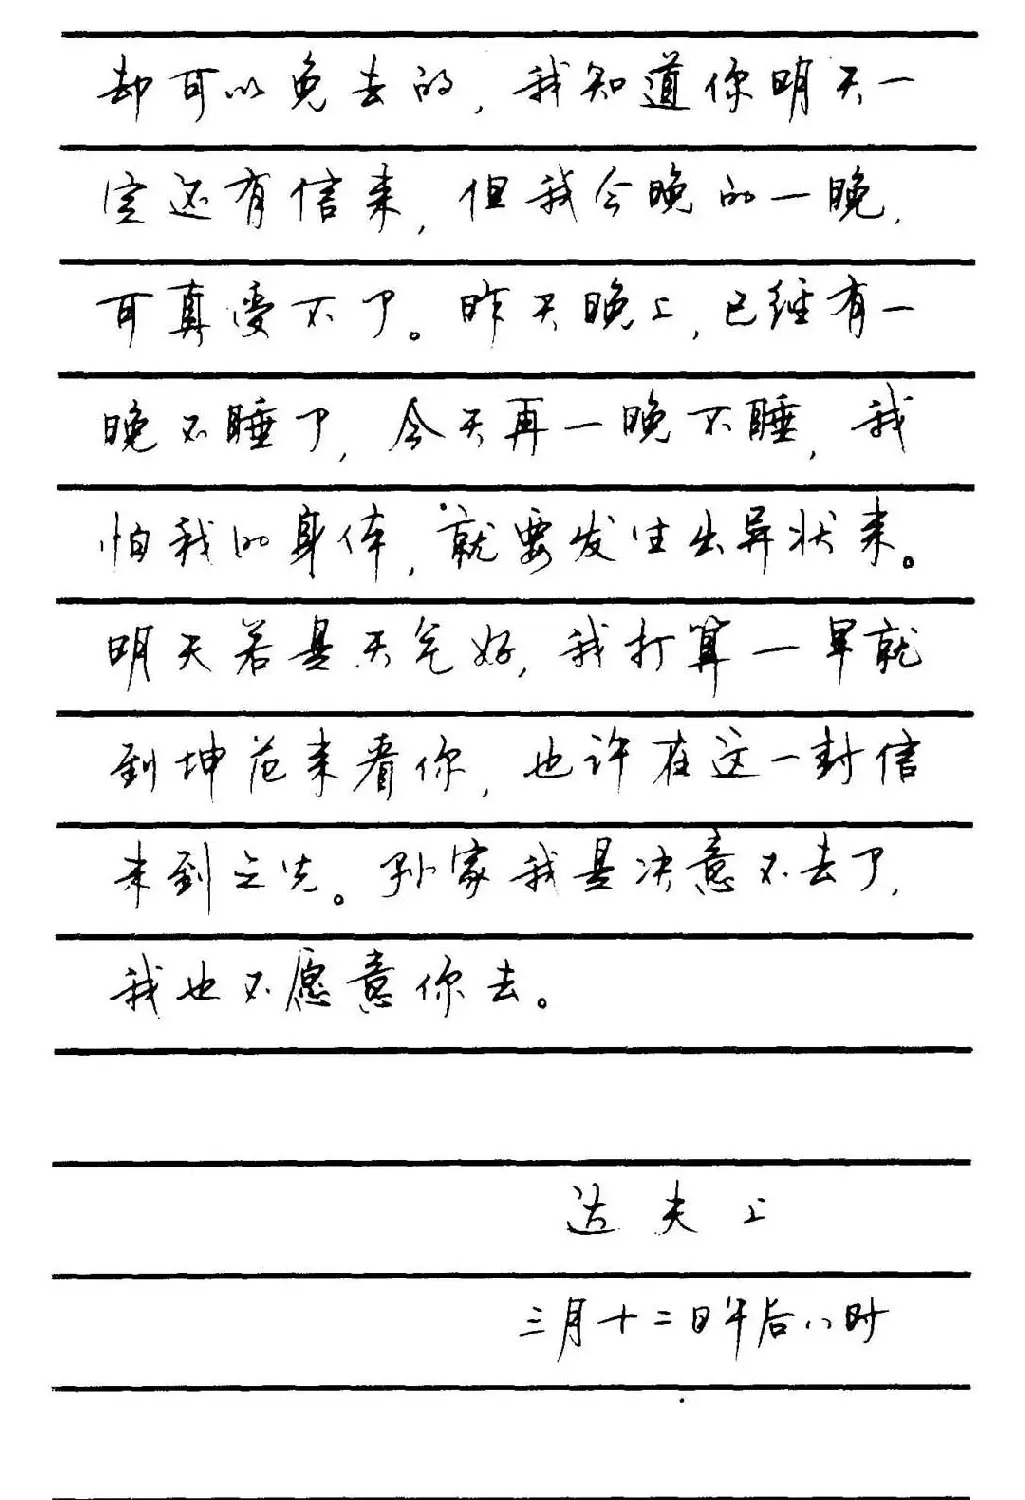 却可以免去的，我知道你明天一
定还有信来，但我今晚的一晚，
可真受不了。昨天晚上，已经有一
晚不睡了，今天再一晚不睡，我
怕我的身体，就要发生出异状来。
明天若是天气好，我打算一早就
到坤范来看你，也许在这一封信
未到之先。孙家我是决意不去了，
我也不愿意你去。
达夫上
三月十二日午后八时